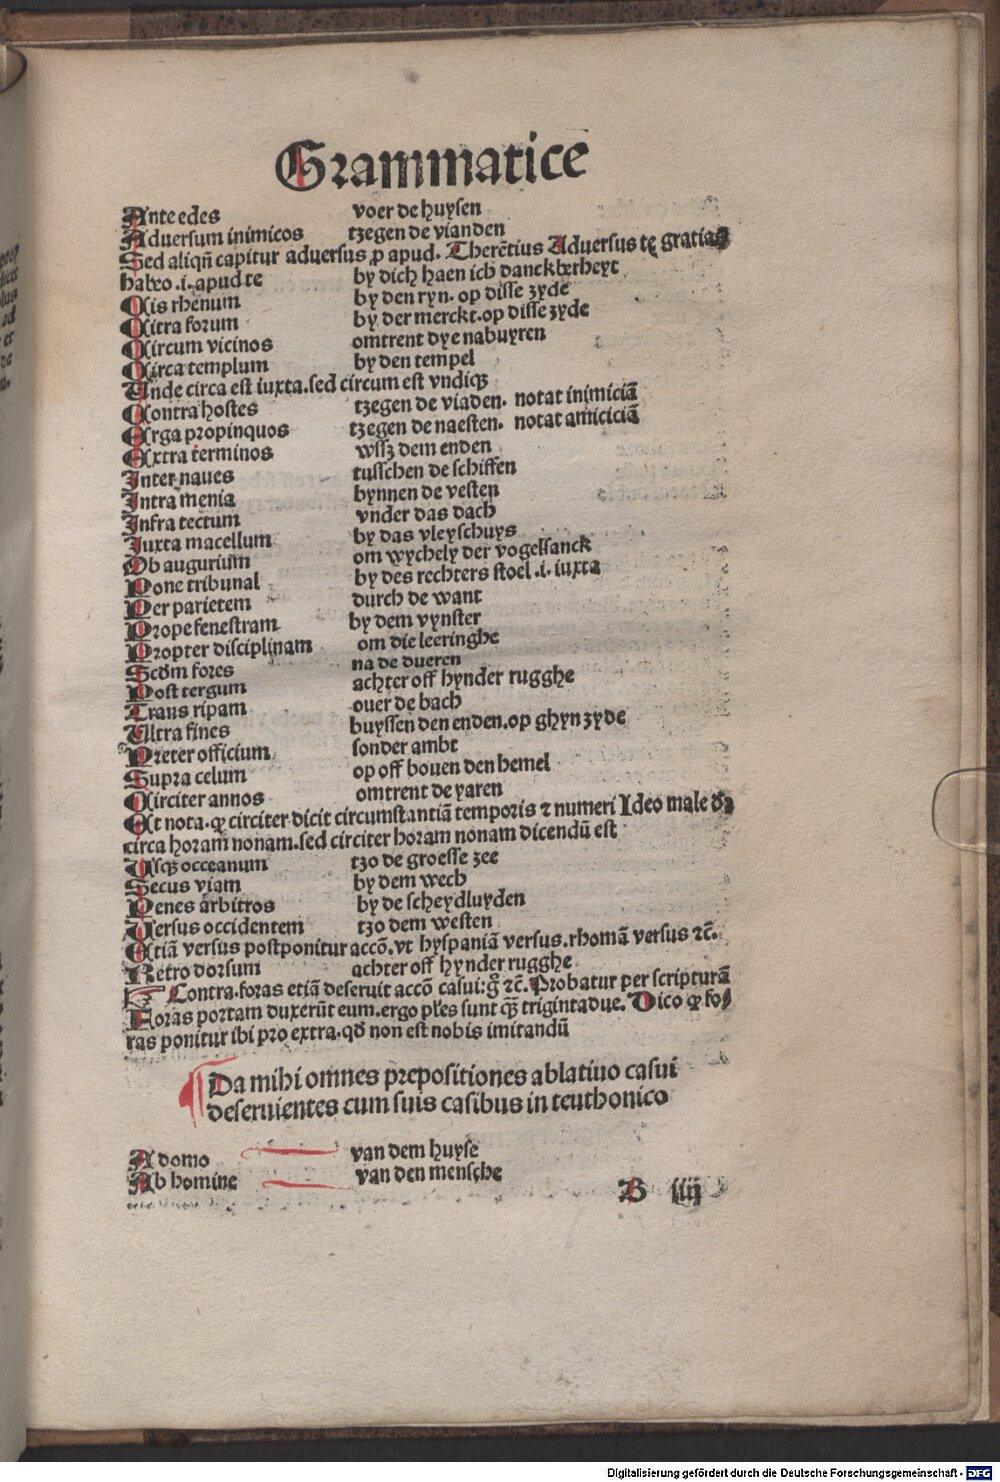 Grammatice
Ante edes voer de huysen
Aduersum inimicos tzegen de vianden
Sed aliqñ capitur aduersus ꝓ apud. Therẽtius Aduersus tę gratias
habeo .i. apud te by dich haen ich danckberheyt
Cis rhenum by den ryn. op disse zyde
Citra forum by der merckt. op disse zyde
Circum vicinos omtrent dye nabuyren
Circa templum by den tempel
Unde circa est iuxta. sed circum est vndiqꝫ
Contra hostes tzegen de viãden. notat inimiciã
Erga propinquos tzegen de naesten. notat amiciciã
Extra terminos wssz dem enden
Inter naues tusschen de schiffen
Intra menia bynnen de vesten
Infra tectum vnder das dach
Iuxta macellum by das vleyschuys
Ob augurium om wychely der vogelsanck
Pone tribunal by des rechters stoel .i. iuxta
Per parietem durch de want
Prope fenestram by dem vynster
Propter disciplinam om die leeringhe
Scd̃m fores na de dueren
Post tergum achter off hynder rugghe
Trans ripam ouer de bach
Ultra fines buyssen den enden. op ghyn zyde
Preter officium sonder ambt
Supra celum op off bouen den hemel
Circiter annos omtrent de yaren
Et nota. ꝙ circiter dicit circumstantiã temporis ⁊ numeri Ideo male dr̃
circa horam nonam. sed circiter horam nonam dicendũ est
Usqꝫ occeanum tzo de groesse zee
Secus viam by dem wech
Penes arbitros by de scheydluyden
Uersus occidentem tzo dem westen
Etiã versus postponitur accõ. vt hyspaniã versus. rhomã versus ⁊c̃.
Retro dorsum achter off hynder rugghe
☞ Contra. foras etiã deseruit accõ casui: gͦ ⁊c̃. Probatur per scripturã
Foras portam duxerũt eum. ergo ples sunt qꝫ̃ trigintadue. Dico ꝙ fo⸗
ras ponitur ibi pro extra. qd̃ non est nobis imitandũ
¶ Da mihi omnes prepositiones ablatiuo casui
deseruientes cum suis casibus in teuthonico
A domo van dem huyse
Ab homine van den mensche
B iiij
Digitalisierung gefördert durch die Deutsche Forschungsgemeinschaft - DFG